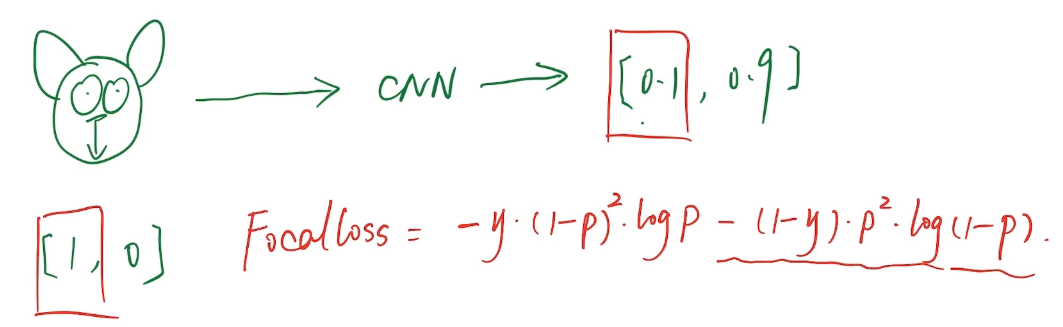 CNN [0.1, 0.9]
[1, 0] Focal loss = -y·(1-p)²·log p - (1-y)·p²·log(1-p).